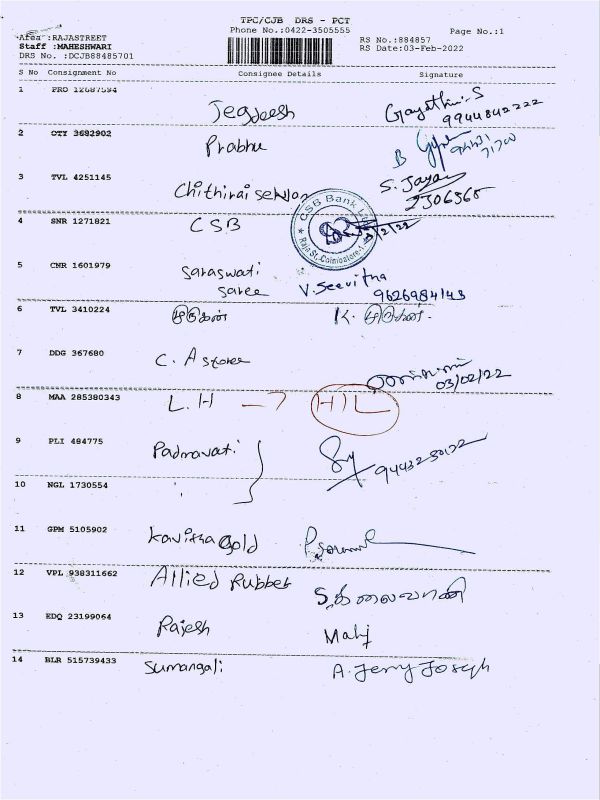 TPC/CJB DRS - PCT
Phone No.:0422-3505555
Page No.:1
Area :RAJASTREET
Staff :MAHESHWARI
DRS No. :DCJB88485701
RS No.:884857
RS Date:03-Feb-2022
S No Consignment No Consignee Details Signature
1 PRO 12687594 Jegdeesh Gayathri.S
9944842222
2 OTY 3682902 Prabhu B
3 TVL 4251145 Chithirai Selvan S. Jayan
2306565
4 SNR 1271821 CSB
CSB Bank
Raja St, Coimbatore-1
5 CNR 1601979 Saraswati
Saree V. Seevitha
9626984143
6 TVL 3410224 முருகன் K. முருகன்.
7 DDG 367680 C. A Stores
03/02/22
8 MAA 285380343 L.H → HIL
9 PLI 484775 Padmavati
9443230122
10 NGL 1730554
11 GPM 5105902 Kavitha Gold
12 VPL 938311662 Allied Rubber S. கலைவாணி
13 EDQ 23199064 Rajesh Malij
14 BLR 515739433 Sumangali A. Jerry Joseph